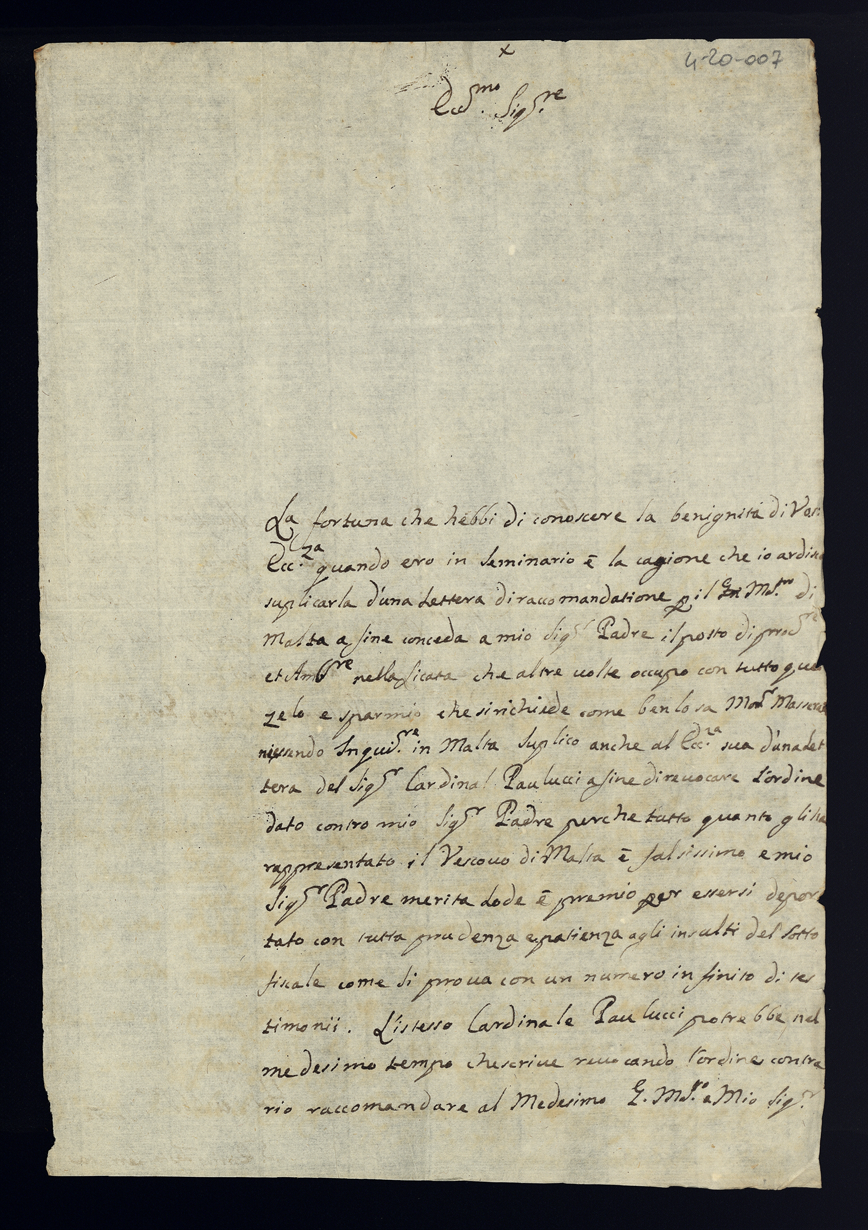 4-20-007
x
Ecc.mo Sig.re
La fortuna che hebbi di conoscere la benignità di Vos
Ecc.za quando ero in Seminario ē la cagione che io ardisc
suplicarla d'una Lettera di raccomandatione p il Gn Ms.ro di
Malta a fine conceda a mio Sigr Padre il posto di procre
et Ambre nella licata che altre volte occupo con tutto quel
zelo e sparmio che si richiede come ben lo sa Monr
essendo Inquisre in Malta Suplico anche al Ecc.za sua d'una Let
tera del Sigr Cardinal Paulucci a fine di revocare l'ordine
dato contro mio Sigr Padre perche tutto quanto gli ha
rappresentato il Vescovo di Malta ē falsissimo e mio
Sigr Padre merita Lode ē premio per essersi depor
tato con tutta prudenza e patienza agli insulti del Sotto
fiscale come si prova con un numero infinito di tes
timonii. L'istesso Cardinale Paulucci potrebbe nel
medesimo tempo che scrive revocando l'ordine contra
rio raccomandare al Medesimo G. Ms.ro a Mio Sigr